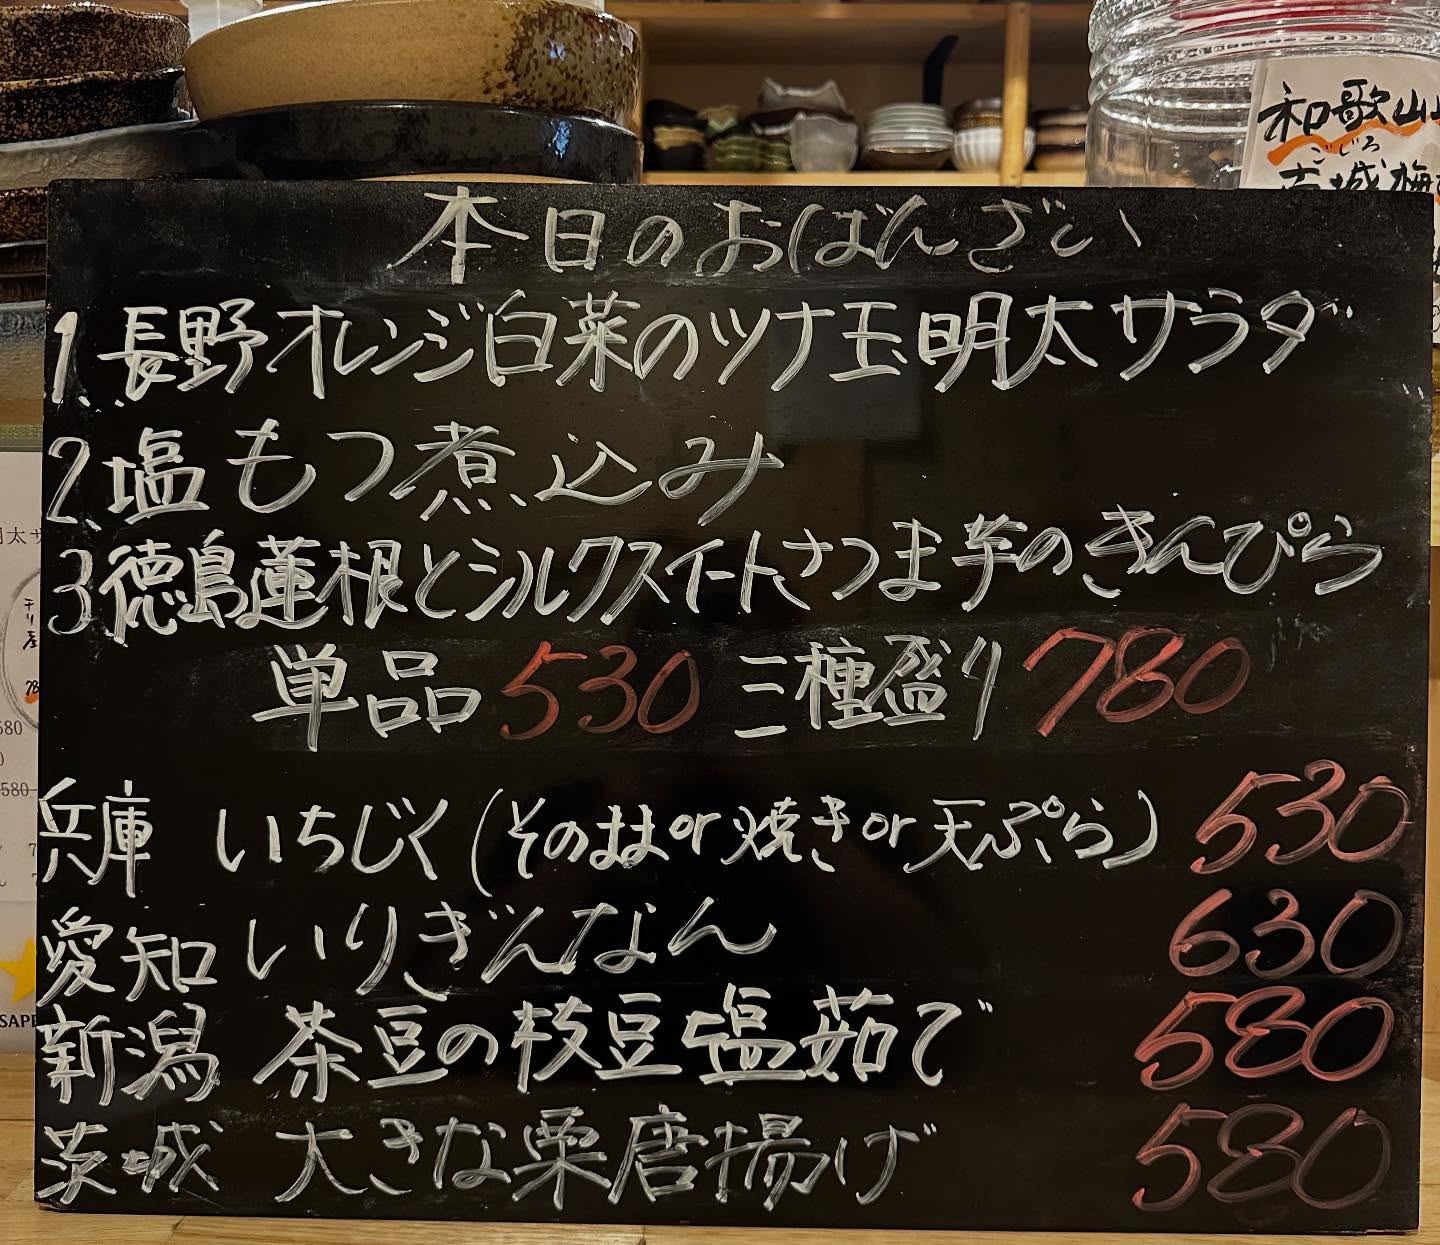 和歌山
ごじろ
古城梅
本日のおばんざい
1.長野オレンジ白菜のツナ玉明太サラダ
2.塩もつ煮込み
3.徳島蓮根とシルクスイートさつま芋のきんぴら
単品530 三種盛り780
兵庫 いちじく(そのままor焼きor天ぷら) 530
愛知 いりぎんなん 630
新潟 茶豆の枝豆塩茹で 580
茨城 大きな栗唐揚げ 580
明太サ
580
580
SAPP